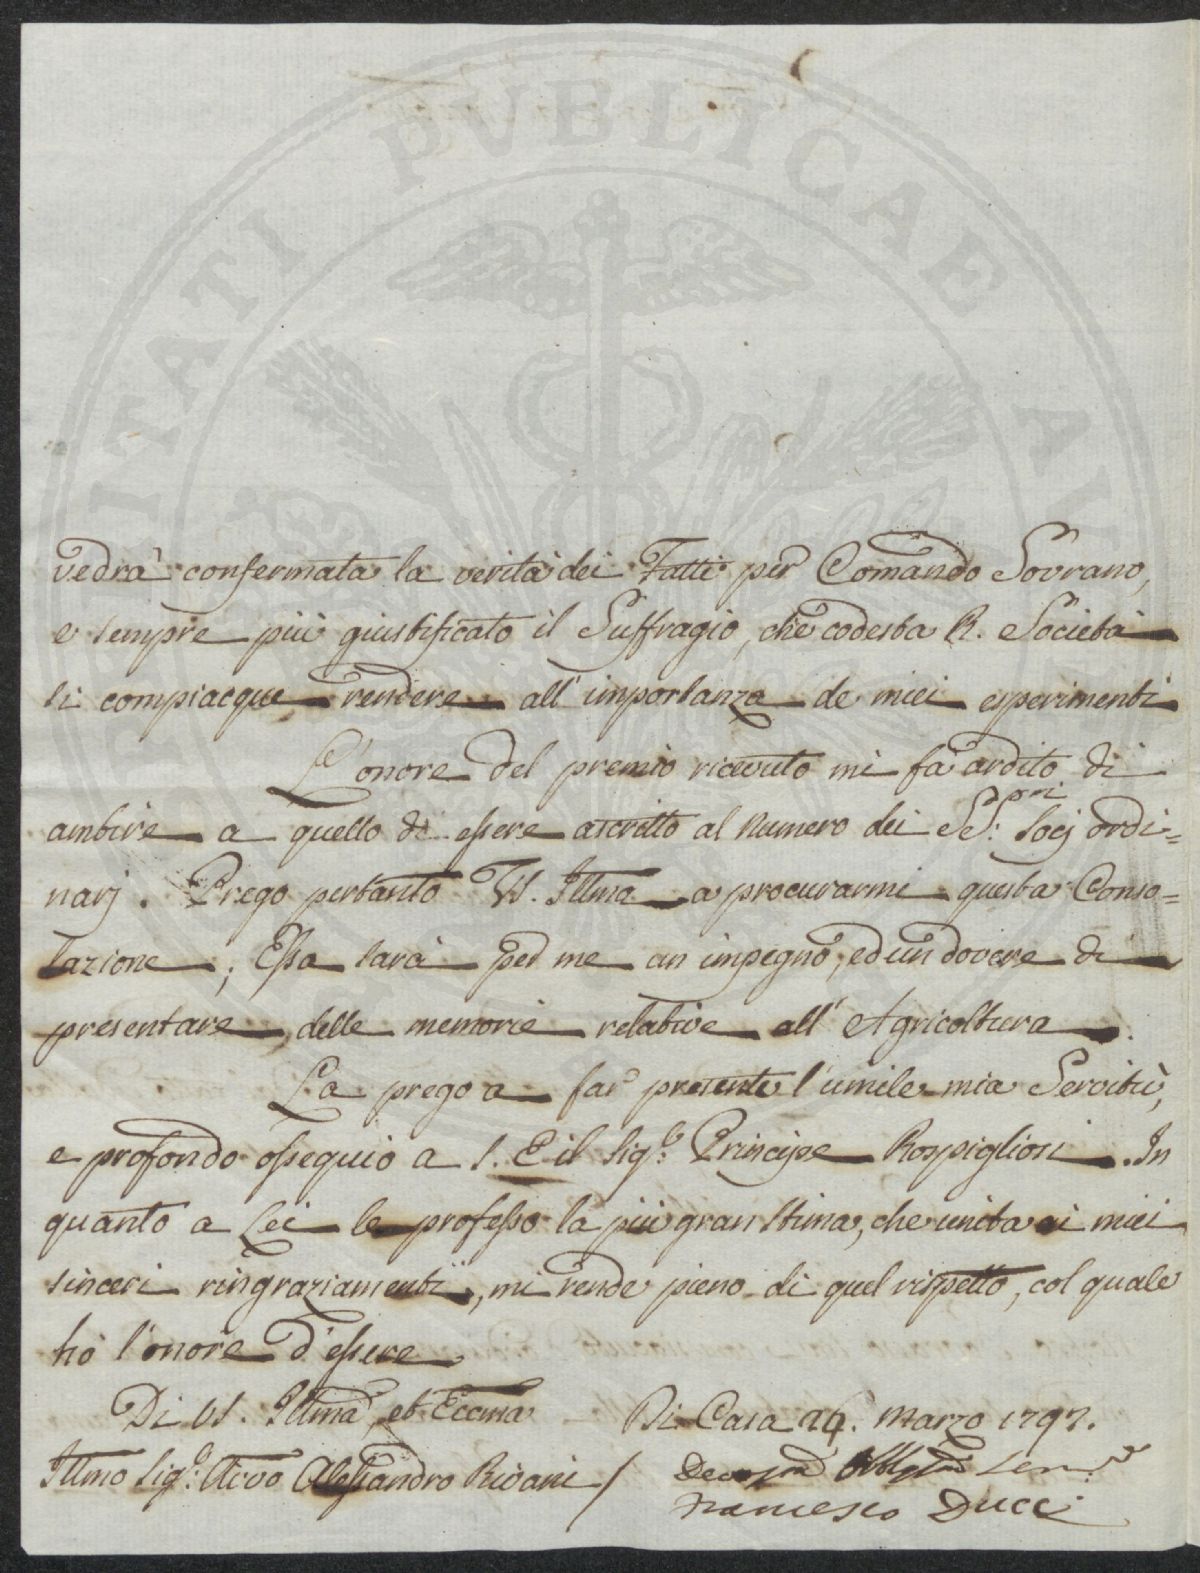 vedrà confermata la verità dei Fatti per Comando Sovrano,
e sempre più giustificato il Suffragio, che codesta R. Società
si compiacque rendere all'importanza de miei esperimenti
L'onore del premio ricevuto mi fa ardito di
ambire a quello di essere ascritto al Numero dei SS:ri Socj ordi=
narj. Prego pertanto VS. Illma a procurarmi questa Conso=
lazione; Essa sarà per me un impegno, ed un dovere di
presentare delle memorie relative all'Agricoltura.
La prego a far presente l'umile mia Servitù,
e profondo ossequio a S. E il Sig:e Principe Rospigliosi. In
quanto a Lei le professo la più gran stima, che unita ai miei
sinceri ringraziamenti, mi rende pieno di quel rispetto, col quale
hò l'onore d'essere
Di VS. Illma, et Eccma
Di Casa 24. Marzo 1797.
Illmo Sig:e Avvo Alessandro Rivani /
Devmo Obblmo Ser:e
Francesco Ducci
PVBLICAE